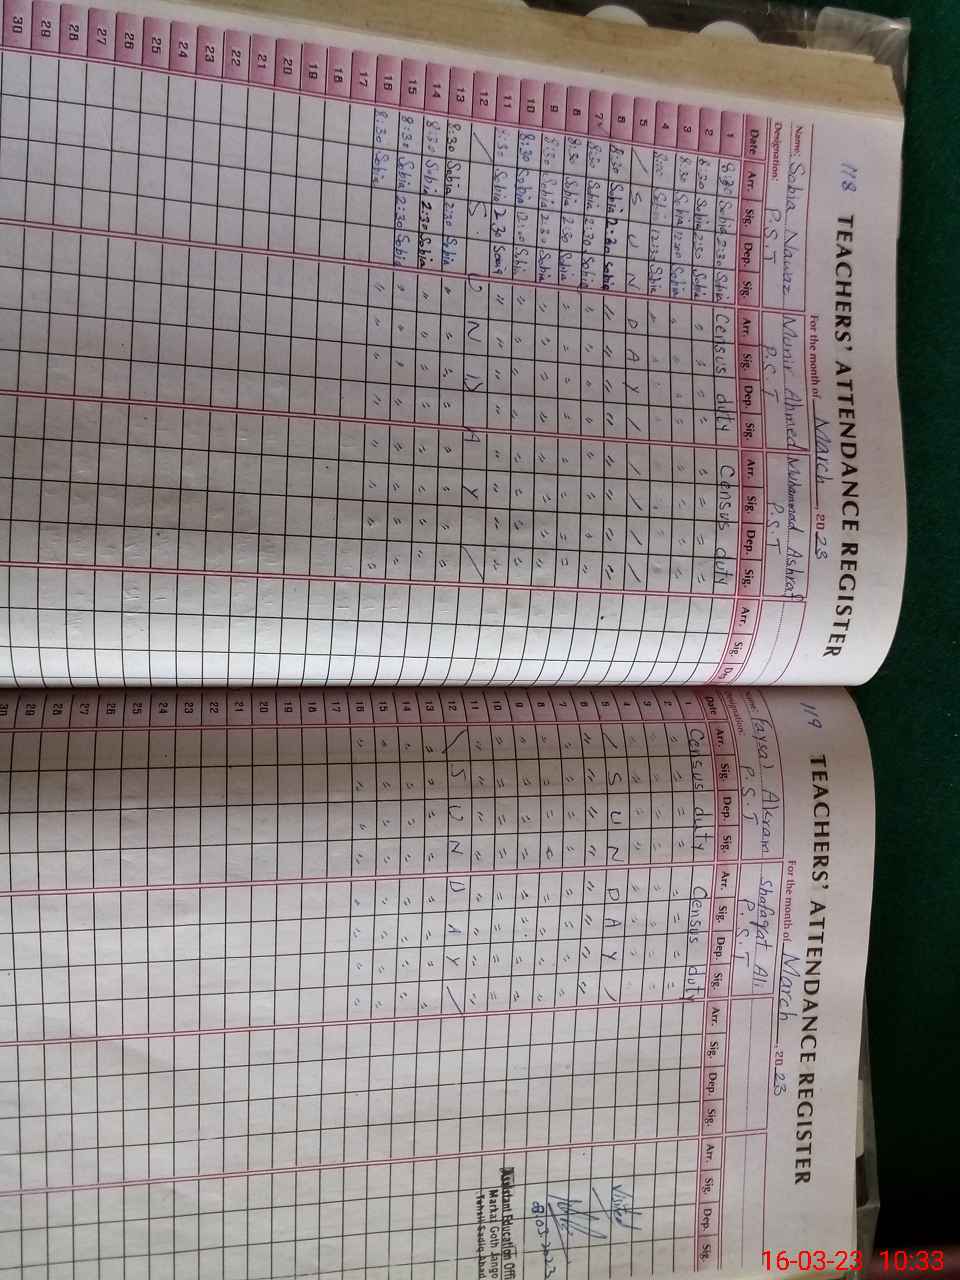 118 TEACHERS' ATTENDANCE REGISTER
For the month of March, 2023
Name: Sobia Nawaz Munir Ahmed Muhammad Ashraf
Designation: P.S.T P.S.T P.S.T
Date Arr. Sig. Dep. Sig. Arr. Sig. Dep. Sig. Arr. Sig. Dep. Sig. Arr. Sig.
1 8:30 Sobia 2:30 Sobia Census duty Census duty
2 8:30 Sobia Sobia " " " " " " " "
3 8:30 Sobia 12:00 Sobia " " " " " " " "
4 8:00 Sobia Sobia " " " " " " " "
5 / S U N D A Y / / / / /
6 8:30 Sobia 2:30 Sobia " " " " " " " "
7 8:30 Sobia 2:30 Sobia " " " " " " " "
8 8:30 Sobia 2:30 Sobia " " " " " " " "
9 8:30 Sobia 2:30 Sobia " " " " " " " "
10 8:30 Sobia Sobia " " " " " " " "
11 8:30 Sobia 2:30 " " " " " " " "
12 / S U N D A Y /
13 8:30 Sobia 2:30 Sobia " " " " " " " "
14 8:30 Sobia 2:30 Sobia " " " " " " " "
15 8:30 Sobia 2:30 Sobia " " " " " " " "
16 8:30 Sobia " " " " " " " "
17
18
19
20
21
22
23
24
25
26
27
28
29
30
119 TEACHERS' ATTENDANCE REGISTER
For the month of March, 2023
Name: Faysal Akram Shafaqat Ali
Designation: P.S.T P.S.T
Date Arr. Sig. Dep. Sig. Arr. Sig. Dep. Sig. Arr. Sig. Dep. Sig. Arr. Sig. Dep. Sig.
1 Census duty Census duty
2 " " " " " " " "
3 " " " " " " " "
4 " " " " " " " "
5 / S U N D A Y / Visited
6 " " " " " " " "
7 " " " " " " " "
8 " " " " " " " " 08.03.2023
9 " " " " " " " "
10 " " " " " " " " Assistant Education Offi
Markaz Goth Jango
Tehsil Sadiq Abad
11 " " " " " " " "
12 / S U N D A Y /
13 " " " " " " " "
14 " " " " " " " "
15 " " " " " " " "
16 " " " " " " " "
17
18
19
20
21
22
23
24
25
26
27
28
29
30
16-03-23 10:33